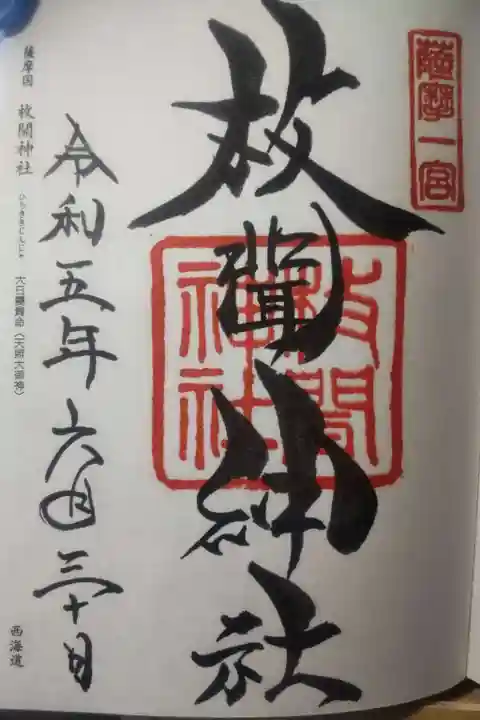 薩摩一宮
枚聞神社
枚聞神社
令和五年六月三十日
薩摩国 枚聞神社 ひらききじんじゃ 大日孁貴命（天照大御神）
西海道